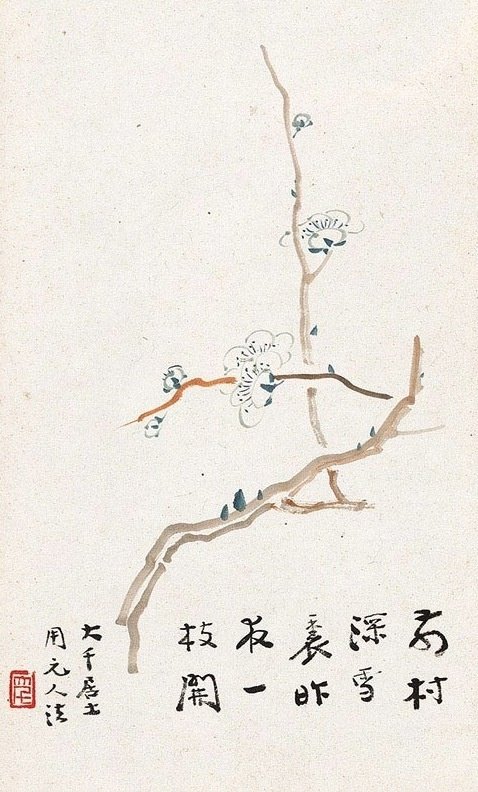 前村
深雪
裏昨
夜一
枝開
大千居士
用元人法